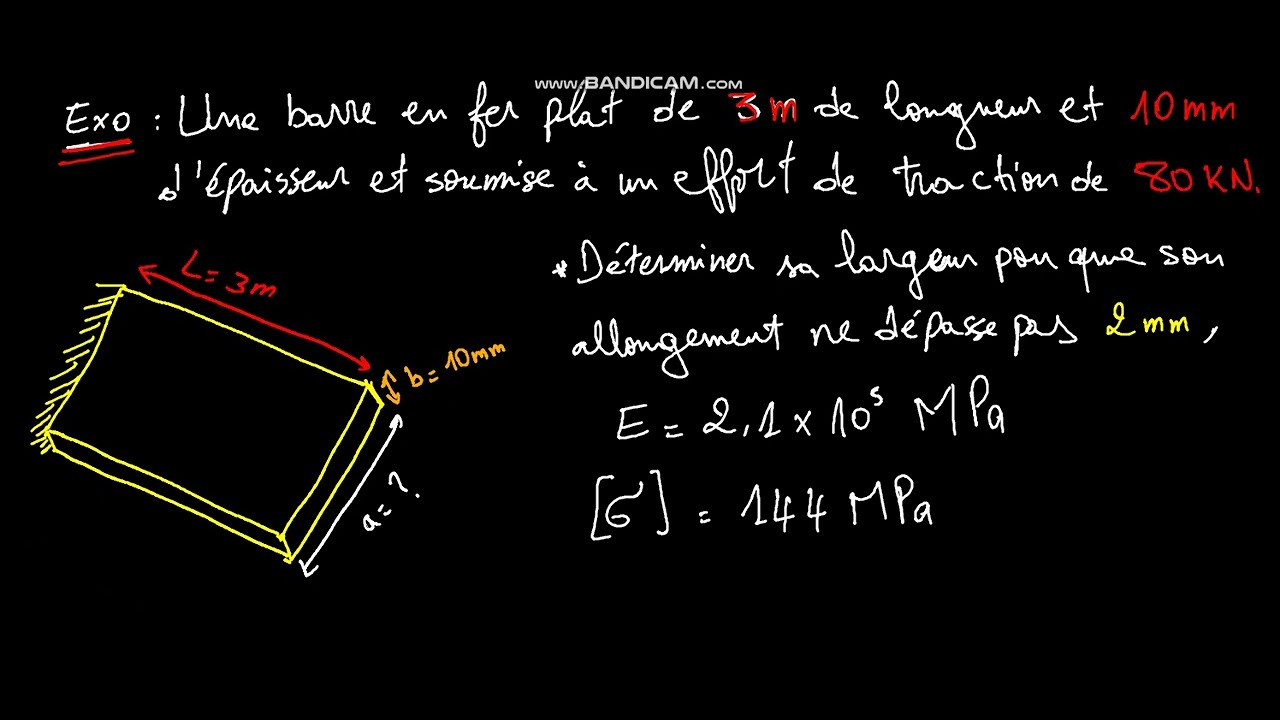 www.BANDICAM.com
Exo : Une barre en fer plat de 3m de longueur et 10mm
d'épaisseur et soumise à un effort de traction de 80 KN.
* Déterminer sa largeur pour que son
allongement ne dépasse pas 2mm,
E = 2,1 x 10⁵ MPa
[σ] = 144 MPa
L = 3m
b = 10mm
a = ?